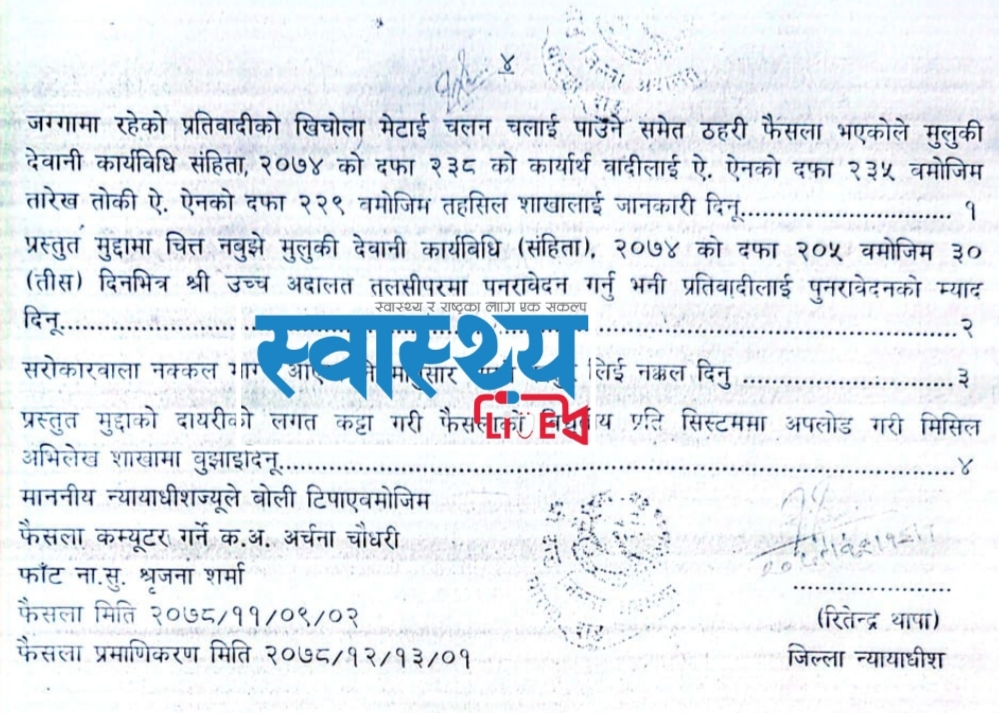 ४
जग्गामा रहेको प्रतिवादीको खिचोला मेटाई चलन चलाई पाउने समेत ठहरी फैसला भएकोले मुलुकी
देवानी कार्यविधि संहिता, २०७४ को दफा २३८ को कार्यार्थ वादीलाई ऐ. ऐनको दफा २३५ वमोजिम
तारेख तोकी ऐ. ऐनको दफा २२९ वमोजिम तहसिल शाखालाई जानकारी दिनू.............................. १
प्रस्तुत मुद्दामा चित्त नबुझे मुलुकी देवानी कार्यविधि (संहिता), २०७४ को दफा २०५ वमोजिम ३०
(तीस) दिनभित्र श्री उच्च अदालत तुलसीपुरमा पुनरावेदन गर्नु भनी प्रतिवादीलाई पुनरावेदनको म्याद
स्वास्थ्य र राष्ट्रका लागि एक संकल्प
दिनू.............................. २
स्वास्थ्य
सरोकारवाला नक्कल लिई नक्कल दिनु.................... ३
LIVE
प्रस्तुत मुद्दाको दायरीको लगत कट्टा गरी फैसलाको प्रति सिस्टममा अपलोड गरी मिसिल
अभिलेख शाखामा वुझाइदिनू.............................. ४
माननीय न्यायाधीशज्यूले वोली टिपाएवमोजिम
फैसला कम्प्युटर गर्ने क.अ. अर्चना चौधरी
फाँट ना.सु. श्रृजना शर्मा
फैसला मिति २०७८/११/०९/०२
फैसला प्रमाणिकरण मिति २०७८/१२/१३/०१
....................
(रितेन्द्र थापा)
जिल्ला न्यायाधीश